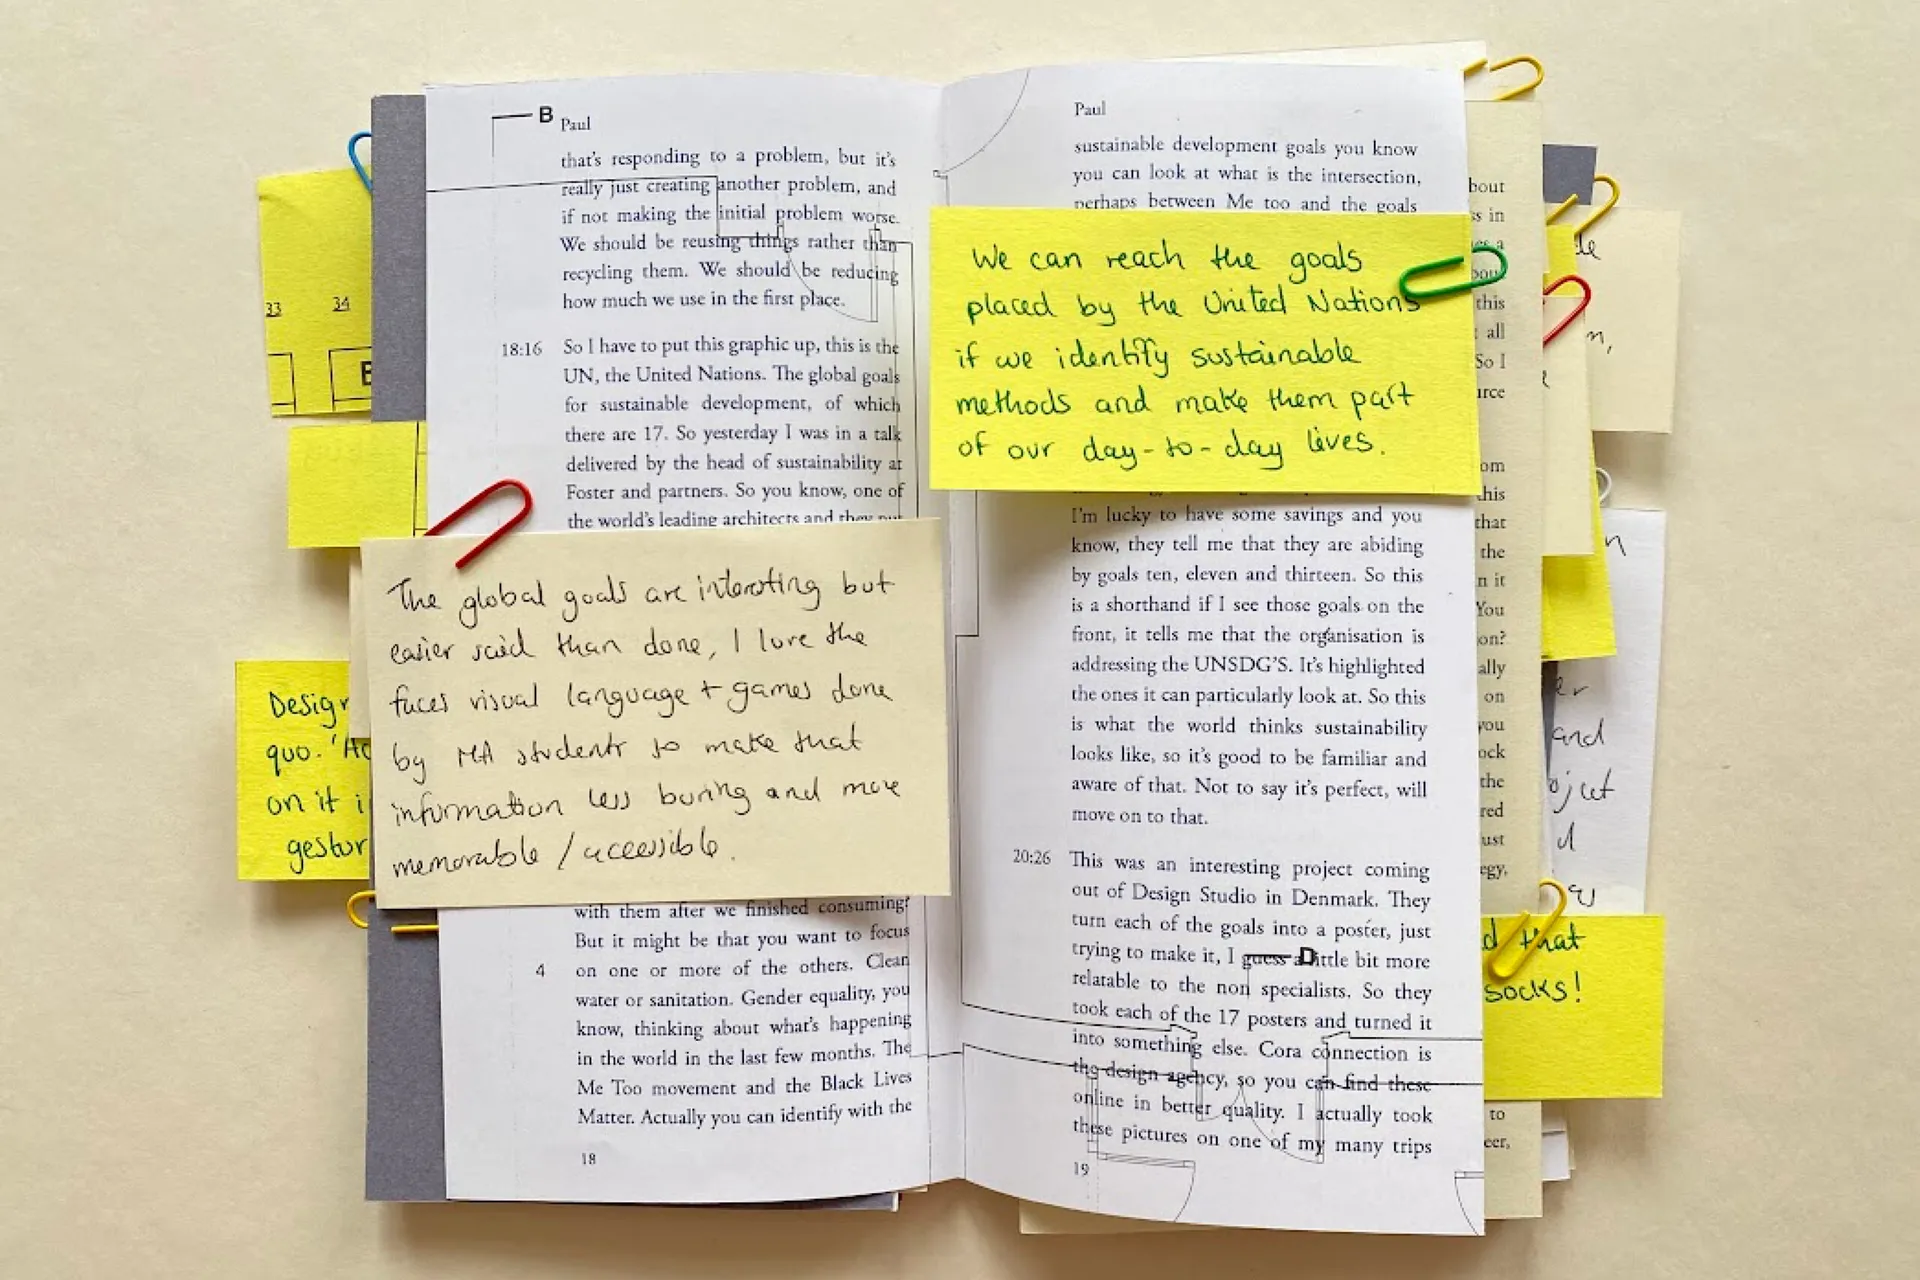 B
Paul
that's responding to a problem, but it's
really just creating another problem, and
if not making the initial problem worse.
We should be reusing things rather than
recycling them. We should be reducing
how much we use in the first place.
18:16 So I have to put this graphic up, this is the
UN, the United Nations. The global goals
for sustainable development, of which
there are 17. So yesterday I was in a talk
delivered by the head of sustainability at
Foster and partners. So you know, one of
the world's leading architects and they put
The global goals are interesting but
easier said than done, I love the
faces visual language + games done
by MA students to make that
information less boring and more
memorable / accessible.
with them after we finished consuming?
But it might be that you want to focus
4 on one or more of the others. Clean
water or sanitation. Gender equality, you
know, thinking about what's happening
in the world in the last few months. The
Me Too movement and the Black Lives
Matter. Actually you can identify with the
18
33 34
Design
quo.
on it i
gestur
Paul
sustainable development goals you know
you can look at what is the intersection,
perhaps between Me too and the goals
We can reach the goals
placed by the United Nations
if we identify sustainable
methods and make them part
of our day-to-day lives.
I'm lucky to have some savings and you
know, they tell me that they are abiding
by goals ten, eleven and thirteen. So this
is a shorthand if I see those goals on the
front, it tells me that the organisation is
addressing the UNSDG'S. It's highlighted
the ones it can particularly look at. So this
is what the world thinks sustainability
looks like, so it's good to be familiar and
aware of that. Not to say it's perfect, will
move on to that.
20:26 This was an interesting project coming
out of Design Studio in Denmark. They
turn each of the goals into a poster, just
trying to make it, I guess a little bit more
D
relatable to the non specialists. So they
took each of the 17 posters and turned it
into something else. Cora connection is
the design agency, so you can find these
online in better quality. I actually took
these pictures on one of my many trips
19
bout
s in
this
all
So I
urce
om
this
that
the
n it
You
on?
ally
on
you
ock
the
red
ust
egy,
to
eer,
and
d that
socks!